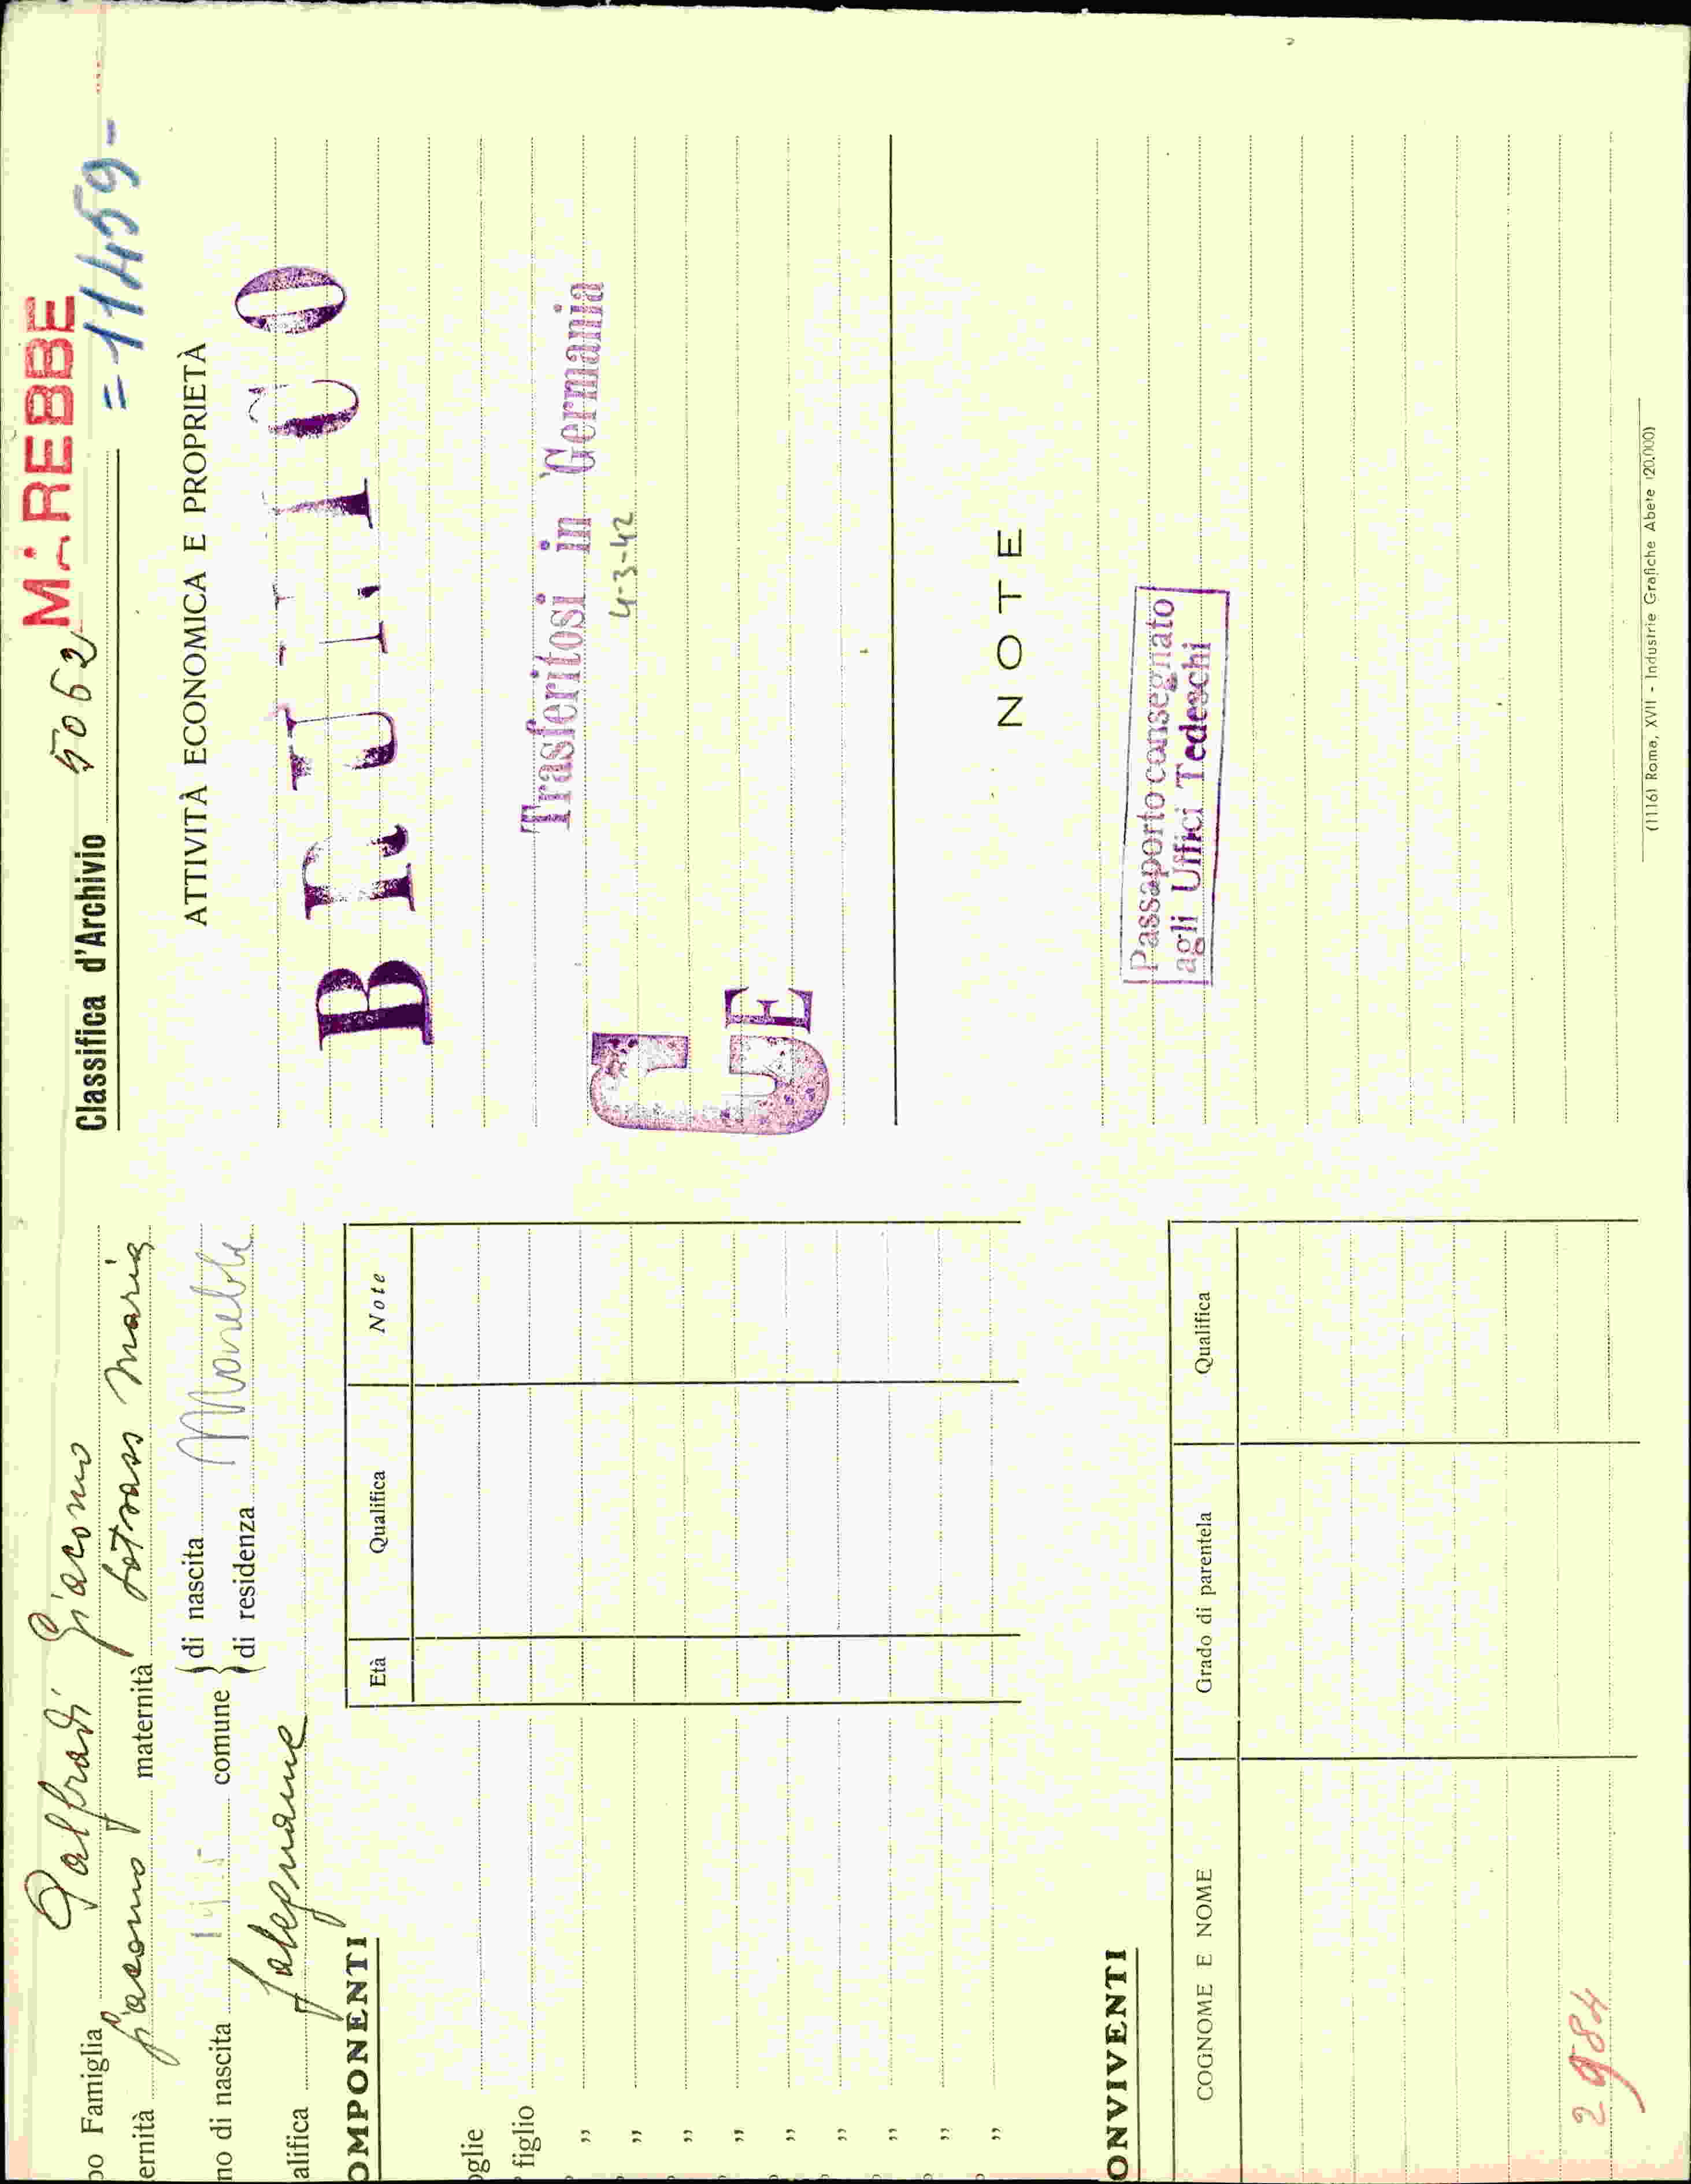 Classifica d'Archivio 5062 MAREBBE
= 11459 -
po Famiglia Palfradi Giacomo
ernità Giacomo maternità Maria
no di nascita comune di nascita Marebbe
di residenza
alifica falegname
OMPONENTI
Età Qualifica Note
oglie
figlio
"
"
"
"
"
"
"
"
"
ONVIVENTI
COGNOME E NOME Grado di parentela Qualifica
2984
ATTIVITÀ ECONOMICA E PROPRIETÀ
BRUNICO
Trasferitosi in Germania
4-3-42
G
E
NOTE
Passaporto consegnato
agli Uffici Tedeschi
(11.161 Roma, XVII - Industrie Grafiche Abete (20.000)